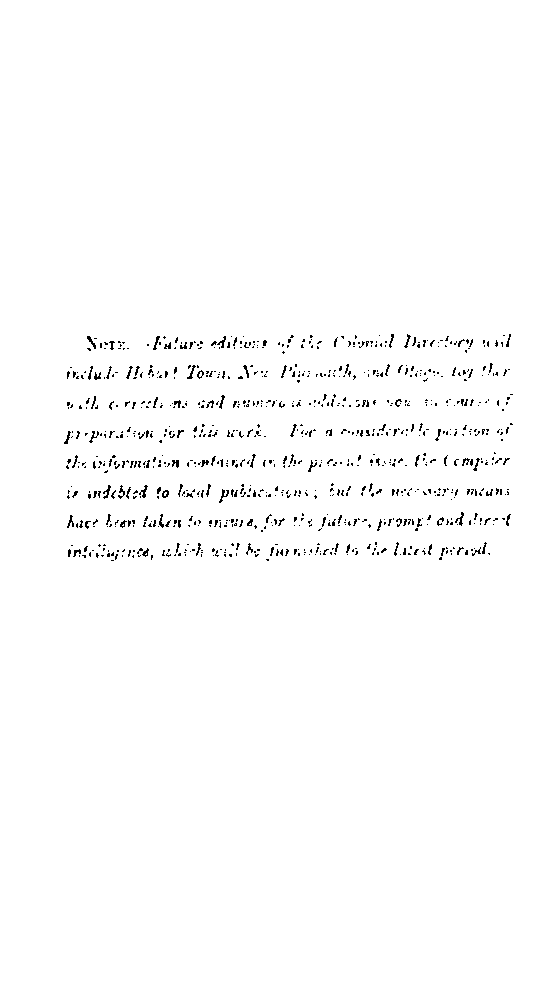 NOTE. -Future editions of the Colonial Directory will
include Hobart Town, New Plymouth, and Otago, together
with corrections and numerous additions now in course of
preparation for this work. For a considerable portion of
the information contained in the present issue, the Compiler
is indebted to local publications; but the necessary means
have been taken to insure, for the future, prompt and direct
intelligence, which will be furnished to the latest period.